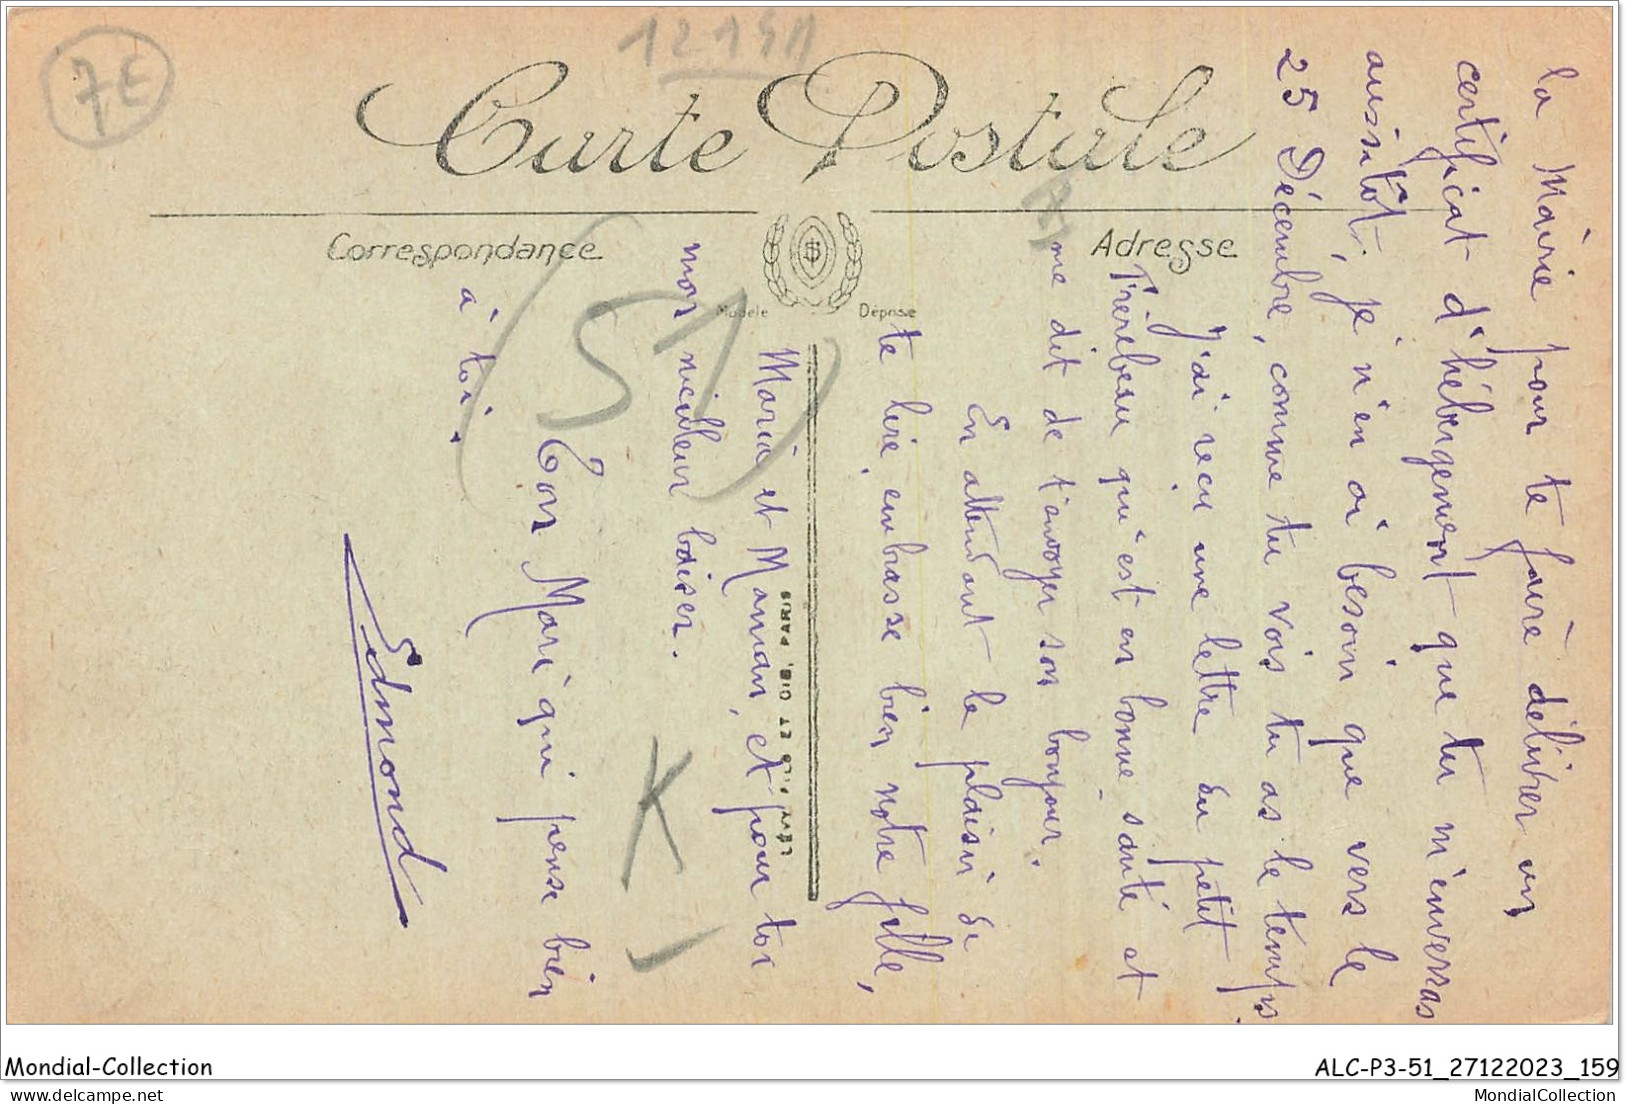 7E
12194
Carte Postale
Correspondance
Adresse
Modèle Déposé
LÉVY FILS ET CIE, PARIS
(51)
K
la Mairie pour te faire délivrer un
certificat d'hébergement que tu m'enverras
aussitôt, je n'en ai besoin que vers le
25 Décembre, comme tu vois tu as le temps.
J'ai reçu une lettre du petit
qui est en bonne santé et
me dit de t'envoyer son bonjour.
En attendant le plaisir de
te lire, embrasse bien notre fille,
Maria et Maman, et pour toi
mon meilleur baiser.
Ton Mari qui pense bien
à toi.
Edmond
Mondial-Collection
ALC-P3-51_27122023_159
MondialCollection